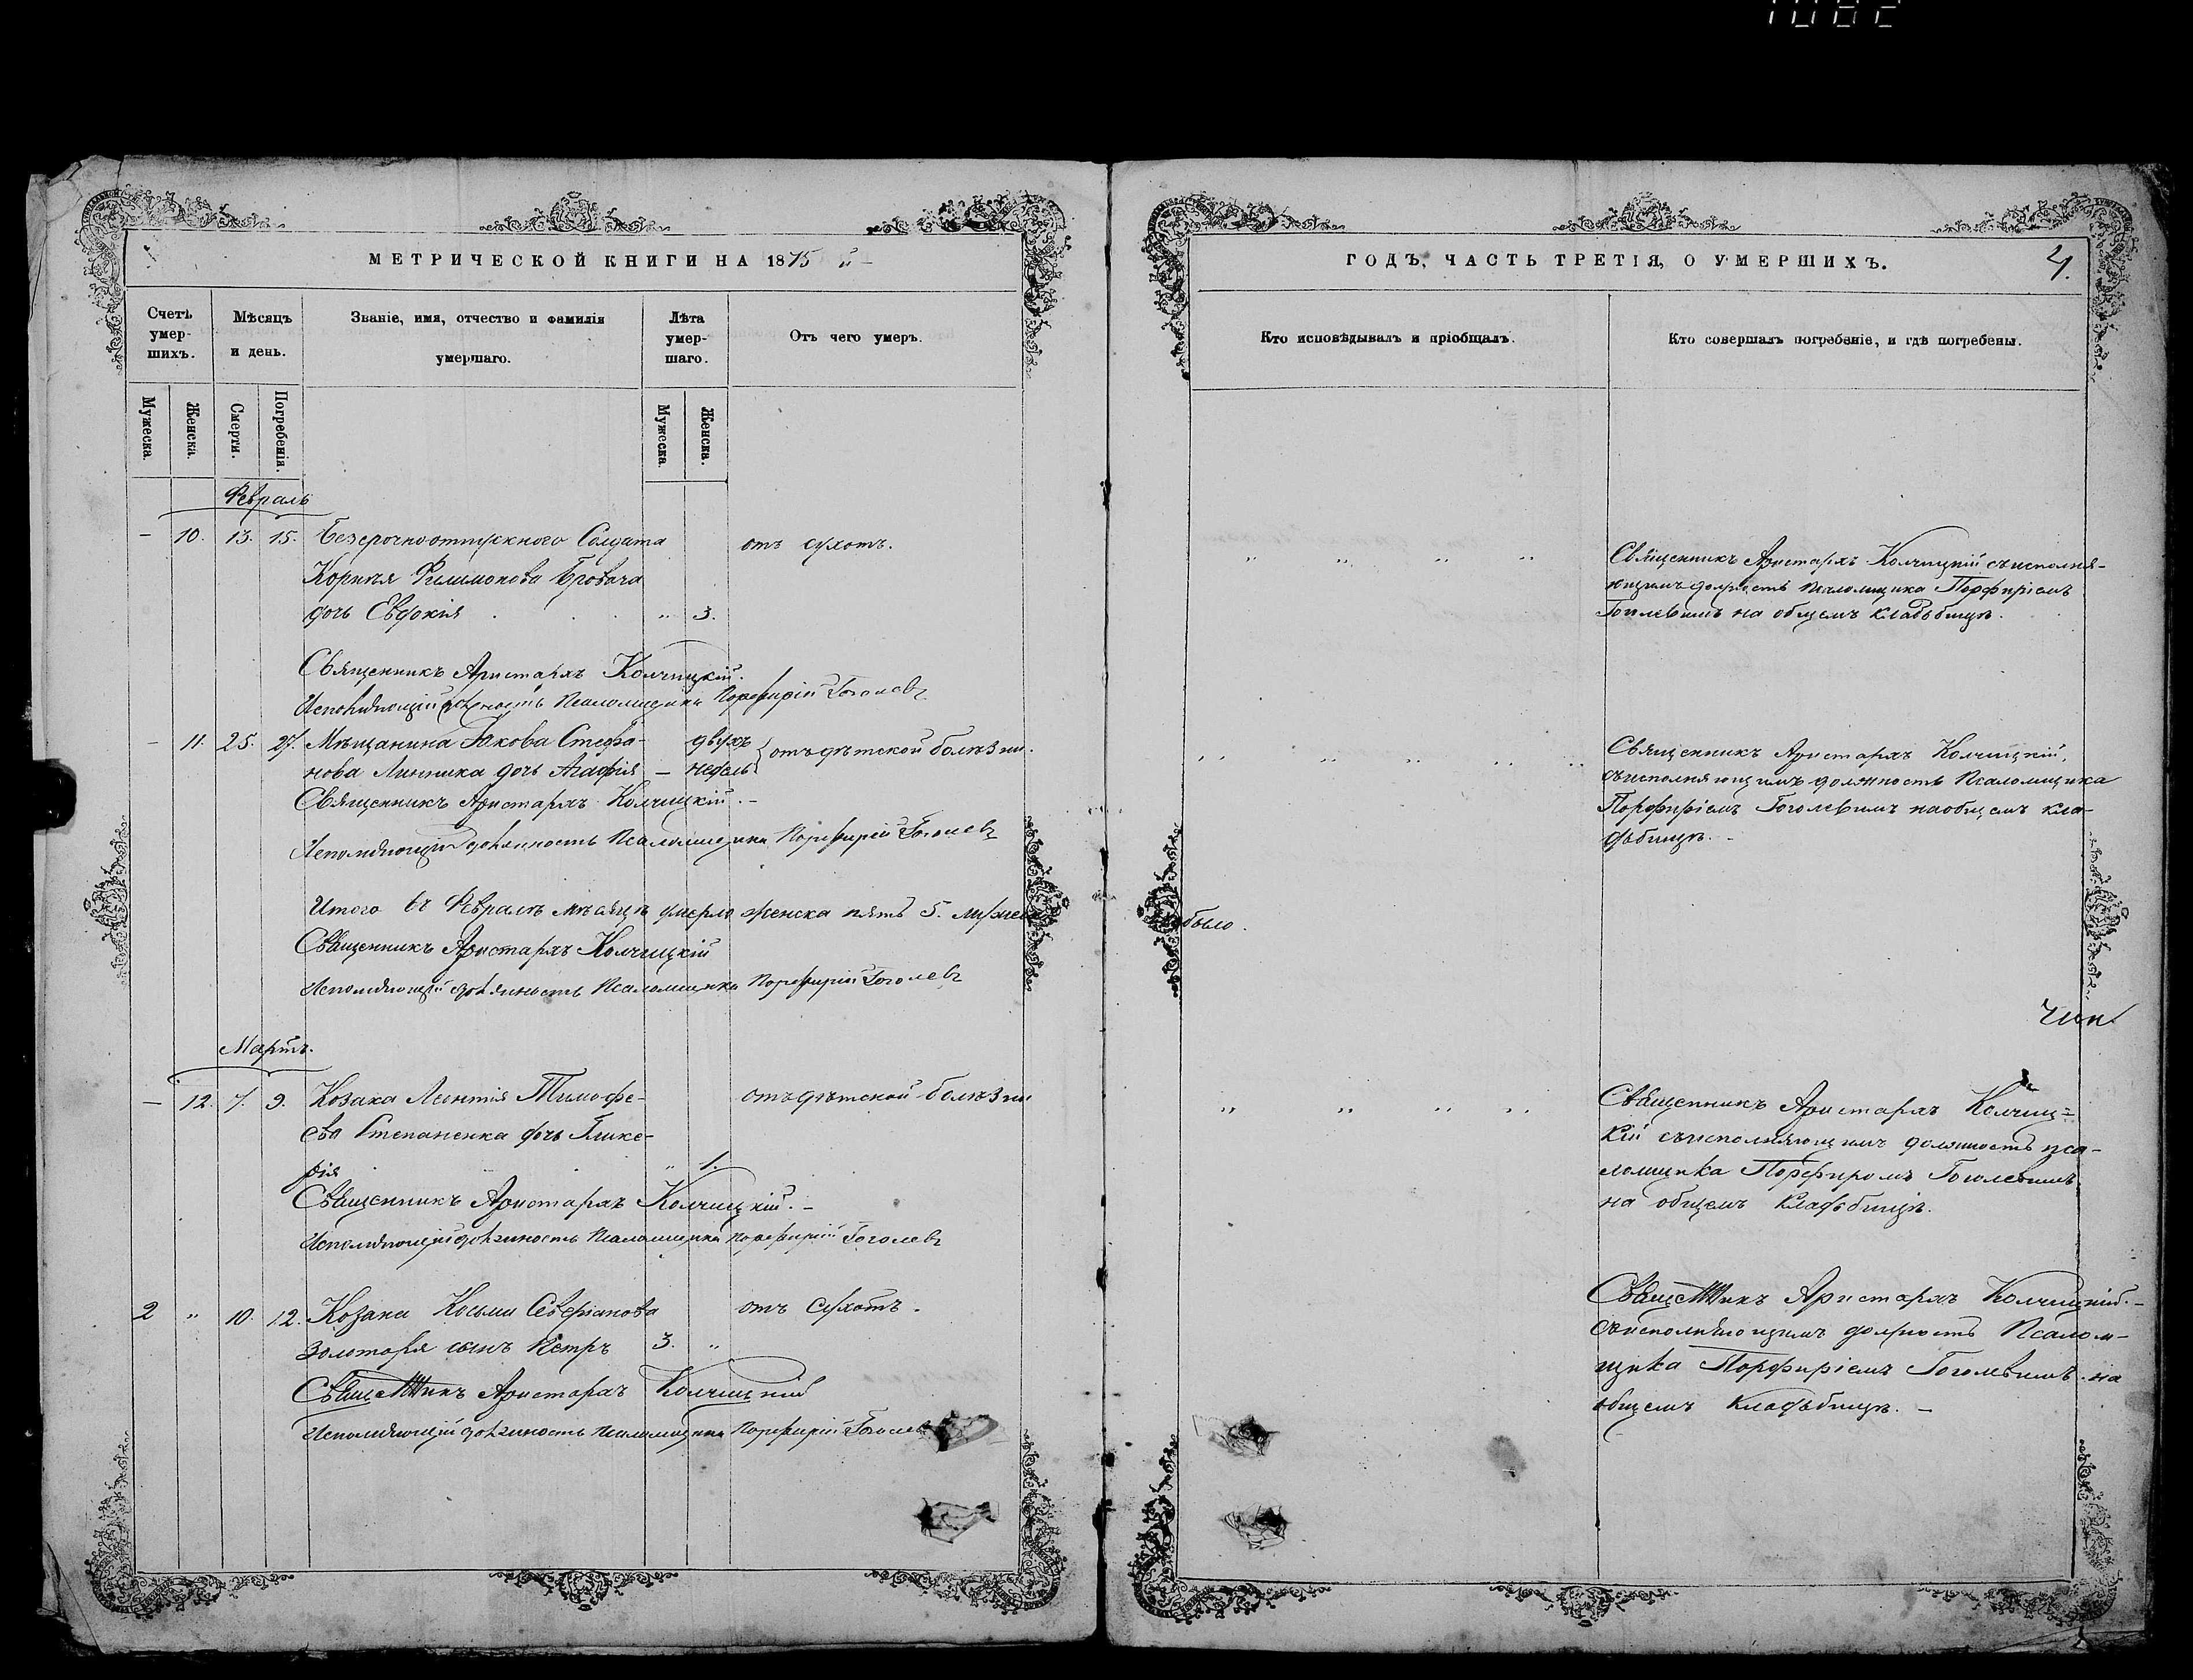 1082
МЕТРИЧЕСКОЙ КНИГИ НА 1875 й
Счетъ умерших. Мѣсяцъ и день. Званіе, имя, отчество и фамилія умершаго. Лѣта умершаго. Отъ чего умеръ.
Мужеска. Женска. Смерти. Погребенія. Мужеска. Женска.
Февраль
– 10. 13. 15. Безсрочно-отпускного Солдата отъ сухотъ.
Корнея Филимонова Бровача
дочь Евдокія " 3.
Священникъ Аристархъ Колчицкій.
Исполняющій должность Псаломщика Порфирій Гоголевъ
– 11. 25. 27. Мѣщанина Якова Стефа- двухъ отъ дѣтской болѣзни.
нова Линника дочь Агафія – недель
Священникъ Аристархъ Колчицкій. –
Исполняющій должность Псаломщика Порфирій Гоголевъ
Итого въ Февралѣ мѣсяцѣ умерло женска пять 5. мужеска
Священникъ Аристархъ Колчицкій
Исполняющій должность Псаломщика Порфирій Гоголевъ
Мартъ.
– 12. 7. 9. Козака Леонтія Тимофе- отъ дѣтской болѣзни
ева Степаненка дочь Глике-
рія " 1.
Священникъ Аристархъ Колчицкій. –
Исполняющій должность Псаломщика Порфирій Гоголевъ
2 " 10. 12. Козака Косьмы Севѣріанова отъ сухотъ.
Золотаря сынъ Петръ 3. "
Священникъ Аристархъ Колчицкій
Исполняющій должность Псаломщика Порфирій Гоголевъ
ГОДЪ, ЧАСТЬ ТРЕТІЯ, О УМЕРШИХЪ.
4.
Кто исповѣдывалъ и пріобщалъ. Кто совершалъ погребеніе, и гдѣ погребены.
" " " " Священникъ Аристархъ Колчицкій съ исполня-
ющимъ должность Псаломщика Порфиріемъ
Гоголевимъ на общемъ кладъбищѣ.
" " " " " Священникъ Аристархъ Колчицкій,
съ исполняющимъ должность Псаломщика
Порфиріемъ Гоголевимъ на общемъ кла-
дъбищѣ. –
было.
" " " " Священникъ Аристархъ Колчиц=
кій съ исполняющимъ должность пса-
ломщика Порфиромъ Гоголевимъ
на общемъ кладъбищѣ.
Священникъ Аристархъ Колчицкій. –
съ исполняющимъ должность Псалом-
щика Порфиріемъ Гоголевимъ на
общемъ кладъбищѣ. –